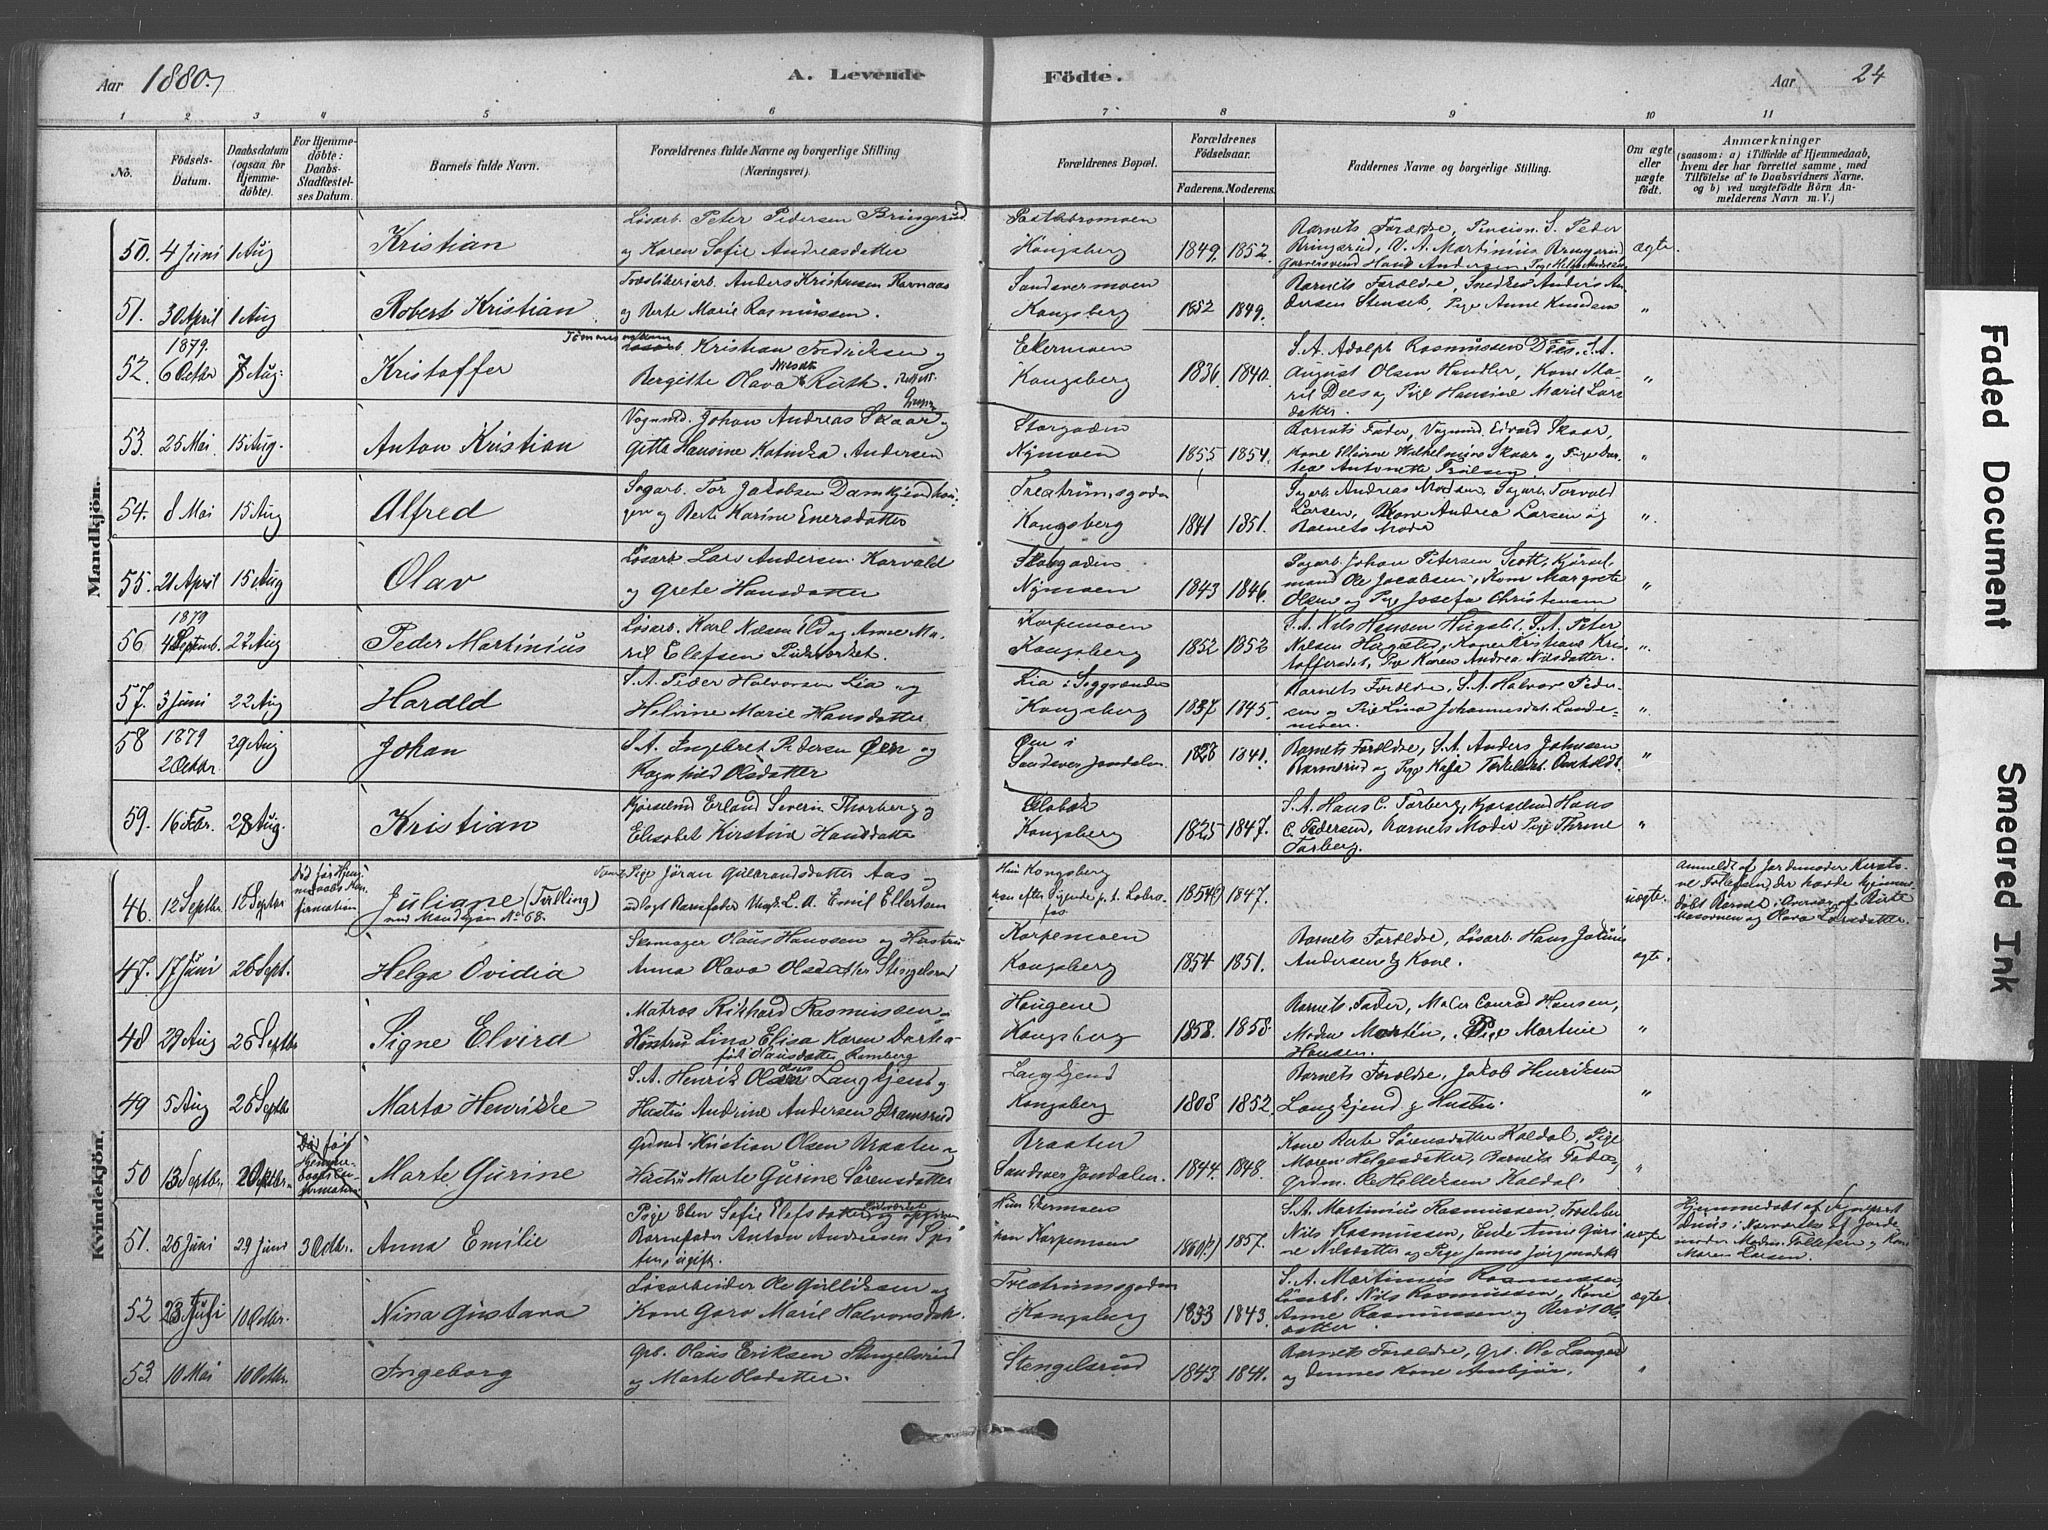 Aar 1880.
A. Levende
Födte.
Aar
24
1 2 3 4 5 6 7 8 9 10 11
No.
Födsels-Datum.
Daabsdatum (ogsaa for Hjemmedöbte).
For Hjemmedöbte: Daabs-Stadfæstelses Datum.
Barnets fulde Navn.
Forældrenes fulde Navne og borgerlige Stilling (Næringsvei).
Forældrenes Bopæl.
Forældrenes Födselsaar.
Faderens. Moderens.
Faddernes Navne og borgerlige Stilling.
Om ægte eller uægte födt.
Anmærkninger
(saasom: a) i Tilfælde af Hjemmedaab, hvem der har forrettet samme, med Tilföielse af to Daabsvidners Navne, og b) ved uægtefödte Börn Anmelderens Navn m. V.)
Mandkjön.
50. 4 Juni 1 Aug Kristian
Lösarb. Peter Pedersen Bringerud
og Karen Sofie Andreasdatter
Kongsberg 1849. 1852.
Barnets Forældre, Pension. S. Peder
Bringerud, U. A. Martinius Bringerud
Garversvend Hans Andersen, Pige Helga Andersen
ægte.
51. 30 April 1 Aug Robert Kristian
Træsliberiarb. Anders Kristensen Ravnaas
og Berte Marie Rasmussen.
Sandsvermoen
Kongsberg 1852 1849.
Barnets Forældre, Snedker Anders An-
dersen Stenset, Pige Anne Knudsen
"
52. 1879. 6 Octbr 7 Aug: Kristoffer
Kristian Fredriksen og
Bergitte Olava Nilsdt Ruth.
Ekermoen
Kongsberg 1836. 1840.
S. A. Adolph Rasmussen Dees. S. A.
August Olsen Handler, Kone Ma-
rie Dees og Pige Hansine Marie Lars
datter.
"
53. 25 Mai 15 Aug. Anton Kristian
Vognmd. Johan Andreas Skaar og
Gitta Hansine Katinka Andersen
Storgaden
Nymoen 1855 1854.
Barnets Fader, Vognmd. Edvard Skaar,
Kone Elline Wilhelmine Skaar og Pige Dor-
tea Antonette
"
54. 8 Mai 15 Aug Alfred
Sagarb. Tor Jakobsen Damkjendhau-
gen og Berte Karine Enersdatter
Kongsberg 1841 1851.
Sagarb Andreas Madsen, Sagarb Torvald
Larsen, Kone Andrea Larsen og
Barnets Moder
"
55. 21 April 15 Aug Olav
Lösarb Lars Andersen Korvald
og Grete Hansdatter
Skolegaden
Nymoen 1843 1846.
Sagarb Johan Petersen Scott, Kjörsel
mand Ole Jacobsen, Kone Margrete
Olsen og Pige Josefa Christensen
"
56 1879 4 Septemb. 22 Aug Peder Martinius
Lösarb. Karl Nilsen Old og Anne Ma-
rie Elefsen
Korpemoen
Kongsberg 1852 1852
S. A. Nils Hansen Hugstel, S. A. Peter
Nielsen Kone Kristiane Kris
toffersdt, Pige Karen Andrea Nilsdatter.
"
57. 3 Juni 22 Aug Harald
S. A. Peder Halvorsen Lia og
Helvine Marie Hansdatter
Lia i
Kongsberg 1837 1845.
Barnets Forældre, S. A. Halvor Peder-
sen og Pige Lina Johannesdt
"
58 1879 2 Octbr. 29 Aug Johan
S. A. Ingebret Pedersen Öen og
Ragnhild Olsdatter
Öen i
Sandsver Jondalen 1828 1841.
Barnets Forældre, S. A. Anders Johnsen
og Pige Kaja Torkelsdt. Omholdt
"
59. 16 Febr. 29 Aug. Kristian
Kjörselmd Erland Severin Thorberg og
Elisabet Kirstine Hansdatter
Kongsberg 1825 1847.
S. A. Hans C. Torberg, Kjörselmd Hans
C. Pedersen, Barnets Moder Pige Thrine
Torberg.
"
Kvindekjön.
46. 12 Septbr. 12 Septbr
Död før Hjem-
medaabs Kon-
firmation
Juliane (Tvilling)
med Mandkjön No 68.
Pige Jöran Gulbrandsdatter Aas og
udlagt Barnefader Ungk. L. A. Emil Ellertsen
Hun Kongsberg
1854(?) 1847.
uægte.
Anmeldt af Jordemoder Kirsti-
ne Follefsen, der havde hjemme-
döbt Barnet i Overvær af Birte
og Olava Larsdatter.
47. 17 Juni 26 Sept. Helga Ovidia
Skomager Olaus Hanssen og Hustru
Anna Olava Olsdatter Stengelsrud
Korpemoen
Kongsberg 1854 1851.
Barnets Forældre, Lösarb. Hans
Andersen & Kone.
ægte.
48 29 Aug 26 Septbr Signe Elvira
Matros Rikhard Rasmussen og
Hustru Lina Elisa Karen Dorthea
föd Hansdatter Ramberg
Haugene
Kongsberg 1858. 1858.
Barnets Fader, Maler Conrad Hansen,
Madm Morten, Pige Martine
Hansen.
"
49 5 Aug 26 Septbr Marta Henrikke
S. A. Henrik Olsen Langkjend og
Hustru Andrine Andersen Dramsrud
Langkjend
Kongsberg 1808 1852.
Barnets Forældre, Jakob Henriksen
Langkjend & Hustru.
"
50 13 Septbr. 2 Octbr. Marte Gurine
Grdmd Kristian Olsen Braaten og
Hustru Marte Gurine Sörensdatter
Braaten
Sandsver Jondalen. 1844. 1848.
Kone Berte Sörensdatter Koldal, Pige
Maren Helgesdatter, Barnets Fader,
Grdm. Ole Hellersen Koldal.
"
51. 26 Juni 29 Juni 3 Octbr. Anna Emilie
Pige Elen Sofie Elefsdatter og opgiven
Barnefader Anton Andersen
ugift.
Hun Ekermoen
han Korpemoen 1860(?) 1857.
S. A. Martinius Rasmussen,
Nils Rasmussen, Enke Anne Guri-
ne Nilsdatter og Pige Janna Jörgensdt.
uægte
Hjemmedöbt af
i Nærværelse af Jorde-
moder Madm. Follefsen og Kone
Maren Larsen.
52 28 Juli 10 Octbr. Nina Gustava
Lösarbeider Ole Gulliksen og
Kone Goro Marie Halvorsdatr.
Kongsberg 1833 1843.
S. A. Martinius Rasmussen
Lösarb. Nils Rasmussen, Kone
Anne Rasmussen og Berit Ols-
datter.
ægte.
53. 10 Mai 10 Octbr. Ingeborg
Grb. Olaus Eriksen Stengelsrud
og Marte Olsdatter.
Stengelsrud 1843 1841.
Barnets Forældre, Grb. Ole Langerd
og dennes Kone Anbjör.
"
Faded Document
Smeared Ink